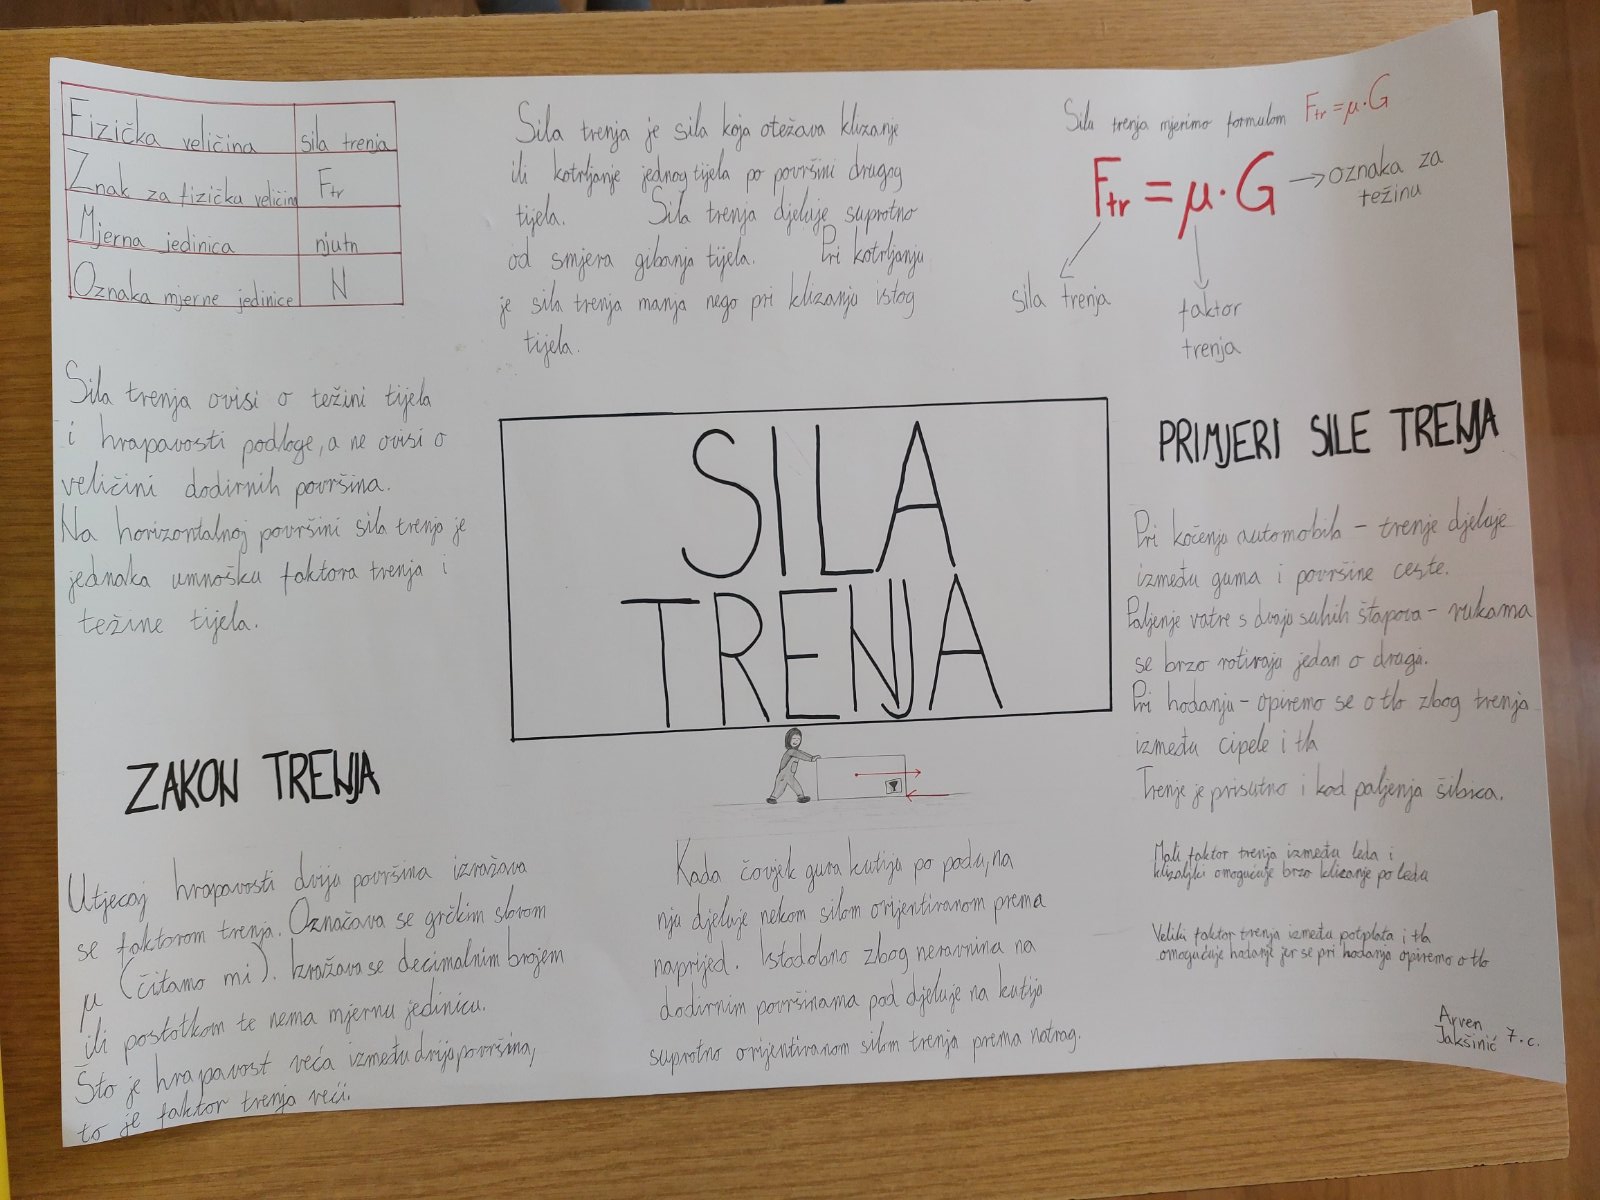 Fizička veličina sila trenja
Znak za fizičku veličinu Ftr
Mjerna jedinica njutn
Oznaka mjerne jedinice N
Sila trenja je sila koja otežava klizanje
ili kotrljanje jednog tijela po površini drugog
tijela. Sila trenja djeluje suprotno
od smjera gibanja tijela. Pri kotrljanju
je sila trenja manja nego pri klizanju istog
tijela.
Sila trenja mjerimo formulom Ftr = μ·G
Ftr = μ·G → oznaka za
težinu
sila trenja
faktor
trenja
Sila trenja ovisi o težini tijela
i hrapavosti podloge, a ne ovisi o
veličini dodirnih površina.
Na horizontalnoj površini sila trenja je
jednaka umnošku faktora trenja i
težine tijela.
SILA
TRENJA
PRIMJERI SILE TRENJA
Pri kočenju automobila – trenje djeluje
između guma i površine ceste.
Paljenje vatre s dvaju suhih štapova – rukama
se brzo rotiraju jedan o drugi.
Pri hodanju – opiremo se o tlo zbog trenja
između cipele i tla
Trenje je prisutno i kod paljenja šibica.
Mali faktor trenja između leda i
klizaljki omogućuje brzo klizanje po ledu
Veliki faktor trenja između potplata i tla
omogućuje hodanje jer se pri hodanju opiremo o tlo
ZAKON TRENJA
Utjecaj hrapavosti dviju površina izražava
se faktorom trenja. Označava se grčkim slovom
μ (čitamo mi). Izražava se decimalnim brojem
ili postotkom te nema mjernu jedinicu.
Što je hrapavost veća između dviju površina,
to je faktor trenja veći.
Kada čovjek gura kutiju po podu, na
nju djeluje nekom silom orijentiranom prema
naprijed. Istodobno zbog neravnina na
dodirnim površinama pod djeluje na kutiju
suprotno orijentiranom silom trenja prema natrag.
Arven
Jakšinić 7.c.